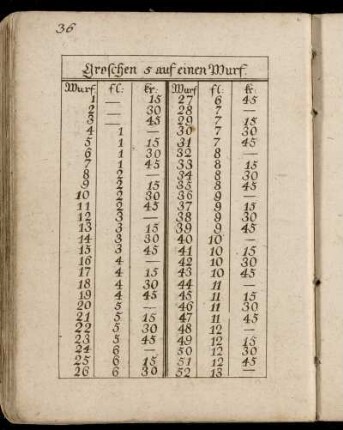 36
Groschen 5 auf einen Wurf.
Wurf fl: kr: Wurf fl: kr:
1 — 15 27 6 45
2 — 30 28 7 —
3 — 45 29 7 15
4 1 — 30 7 30
5 1 15 31 7 45
6 1 30 32 8 —
7 1 45 33 8 15
8 2 — 34 8 30
9 2 15 35 8 45
10 2 30 36 9 —
11 2 45 37 9 15
12 3 — 38 9 30
13 3 15 39 9 45
14 3 30 40 10 —
15 3 45 41 10 15
16 4 — 42 10 30
17 4 15 43 10 45
18 4 30 44 11 —
19 4 45 45 11 15
20 5 — 46 11 30
21 5 15 47 11 45
22 5 30 48 12 —
23 5 45 49 12 15
24 6 — 50 12 30
25 6 15 51 12 45
26 6 30 52 13 —